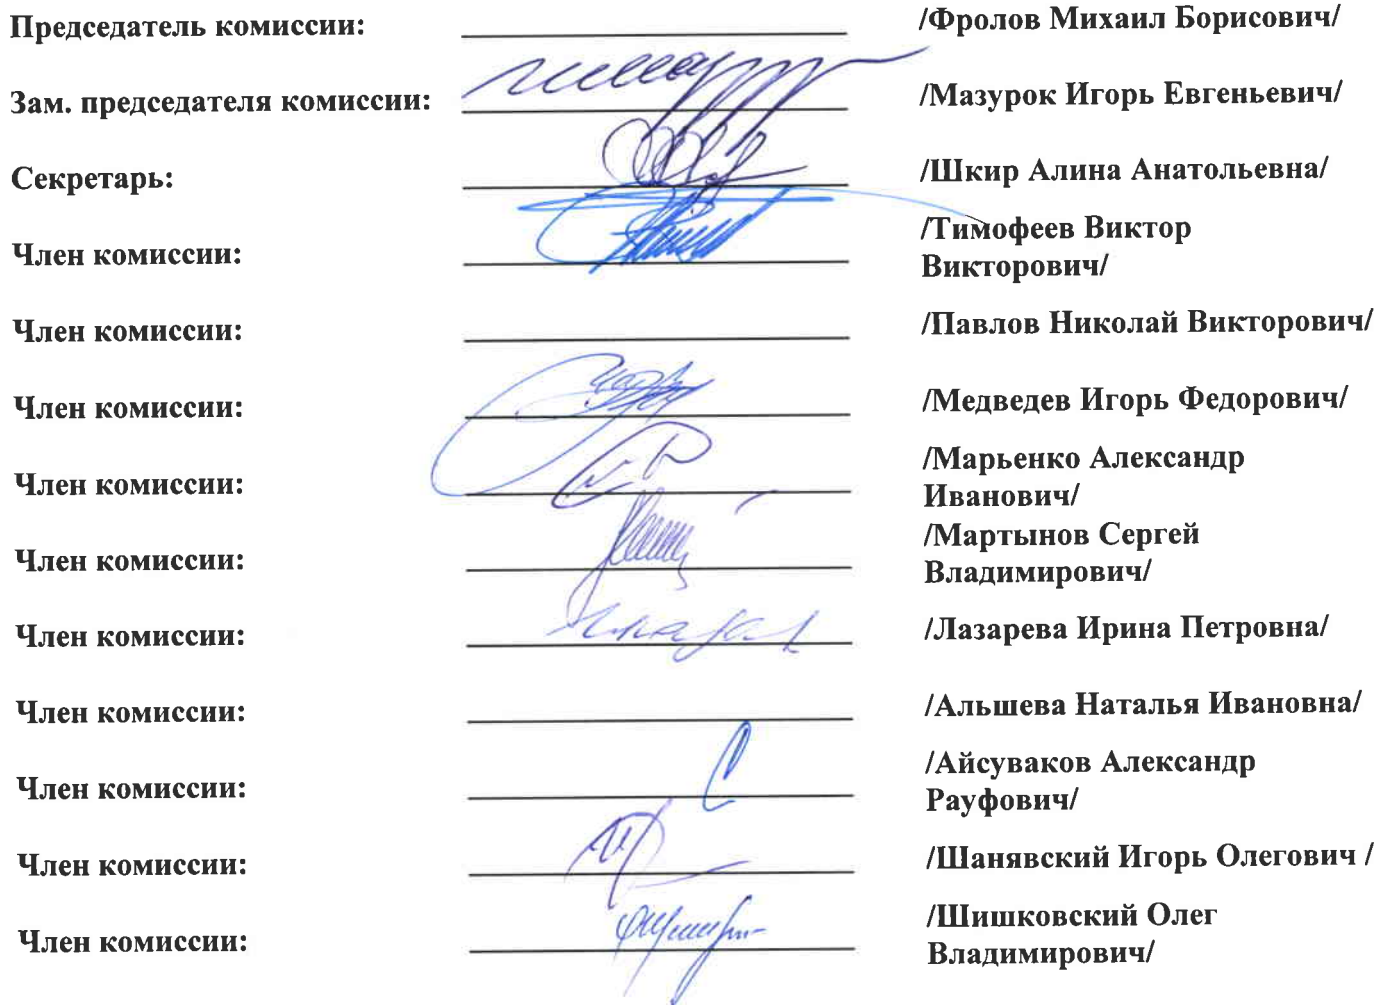 Председатель комиссии: /Фролов Михаил Борисович/
Зам. председателя комиссии: /Мазурок Игорь Евгеньевич/
Секретарь: /Шкир Алина Анатольевна/
Член комиссии: /Тимофеев Виктор
Викторович/
Член комиссии: /Павлов Николай Викторович/
Член комиссии: /Медведев Игорь Федорович/
Член комиссии: /Марьенко Александр
Иванович/
Член комиссии: /Мартынов Сергей
Владимирович/
Член комиссии: /Лазарева Ирина Петровна/
Член комиссии: /Альшева Наталья Ивановна/
Член комиссии: /Айсуваков Александр
Рауфович/
Член комиссии: /Шанявский Игорь Олегович /
Член комиссии: /Шишковский Олег
Владимирович/